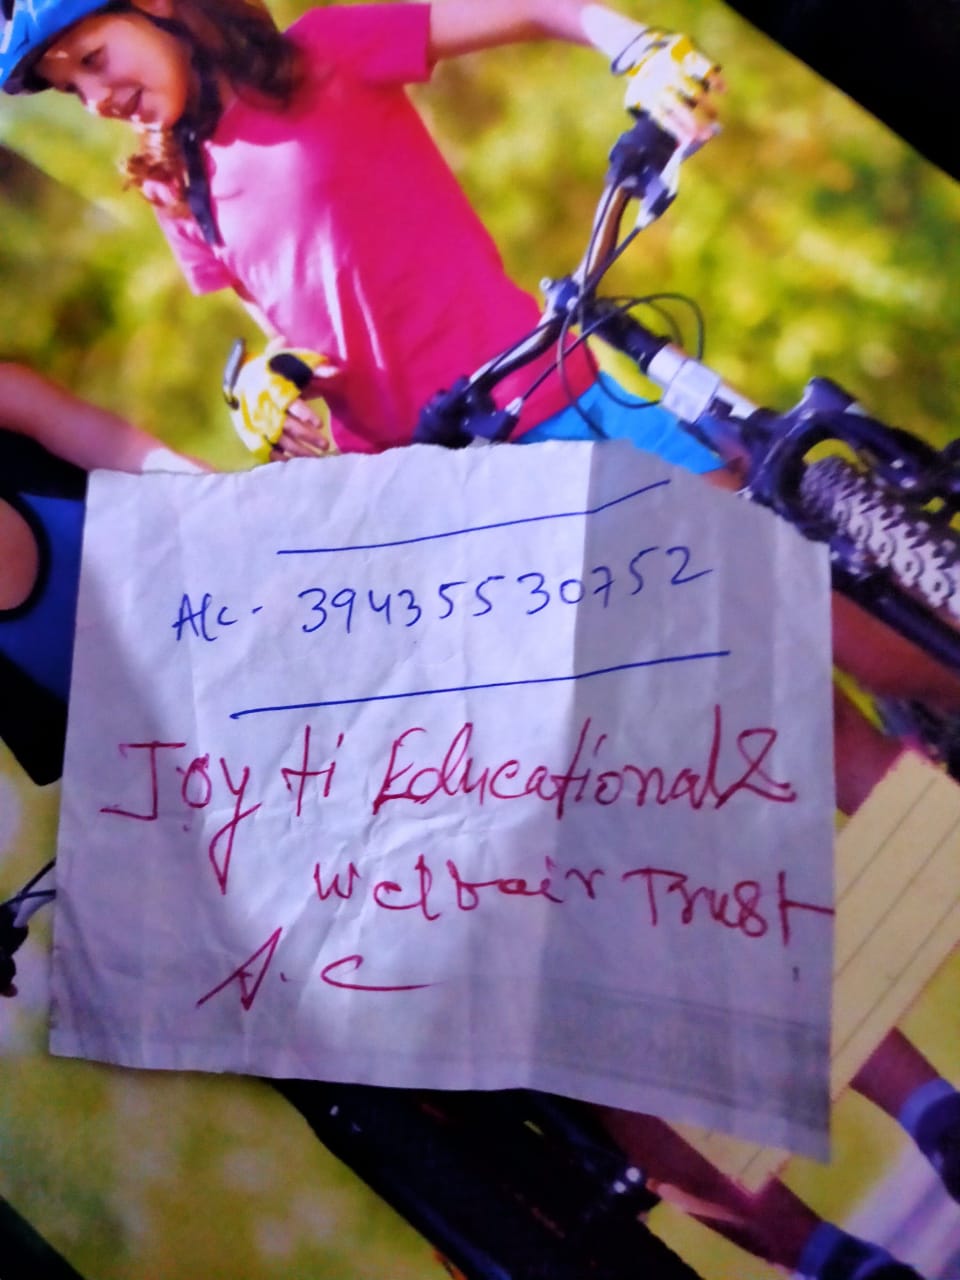 A/c - 39435530752
Joyti Educational &
Welfair Trust
A.C